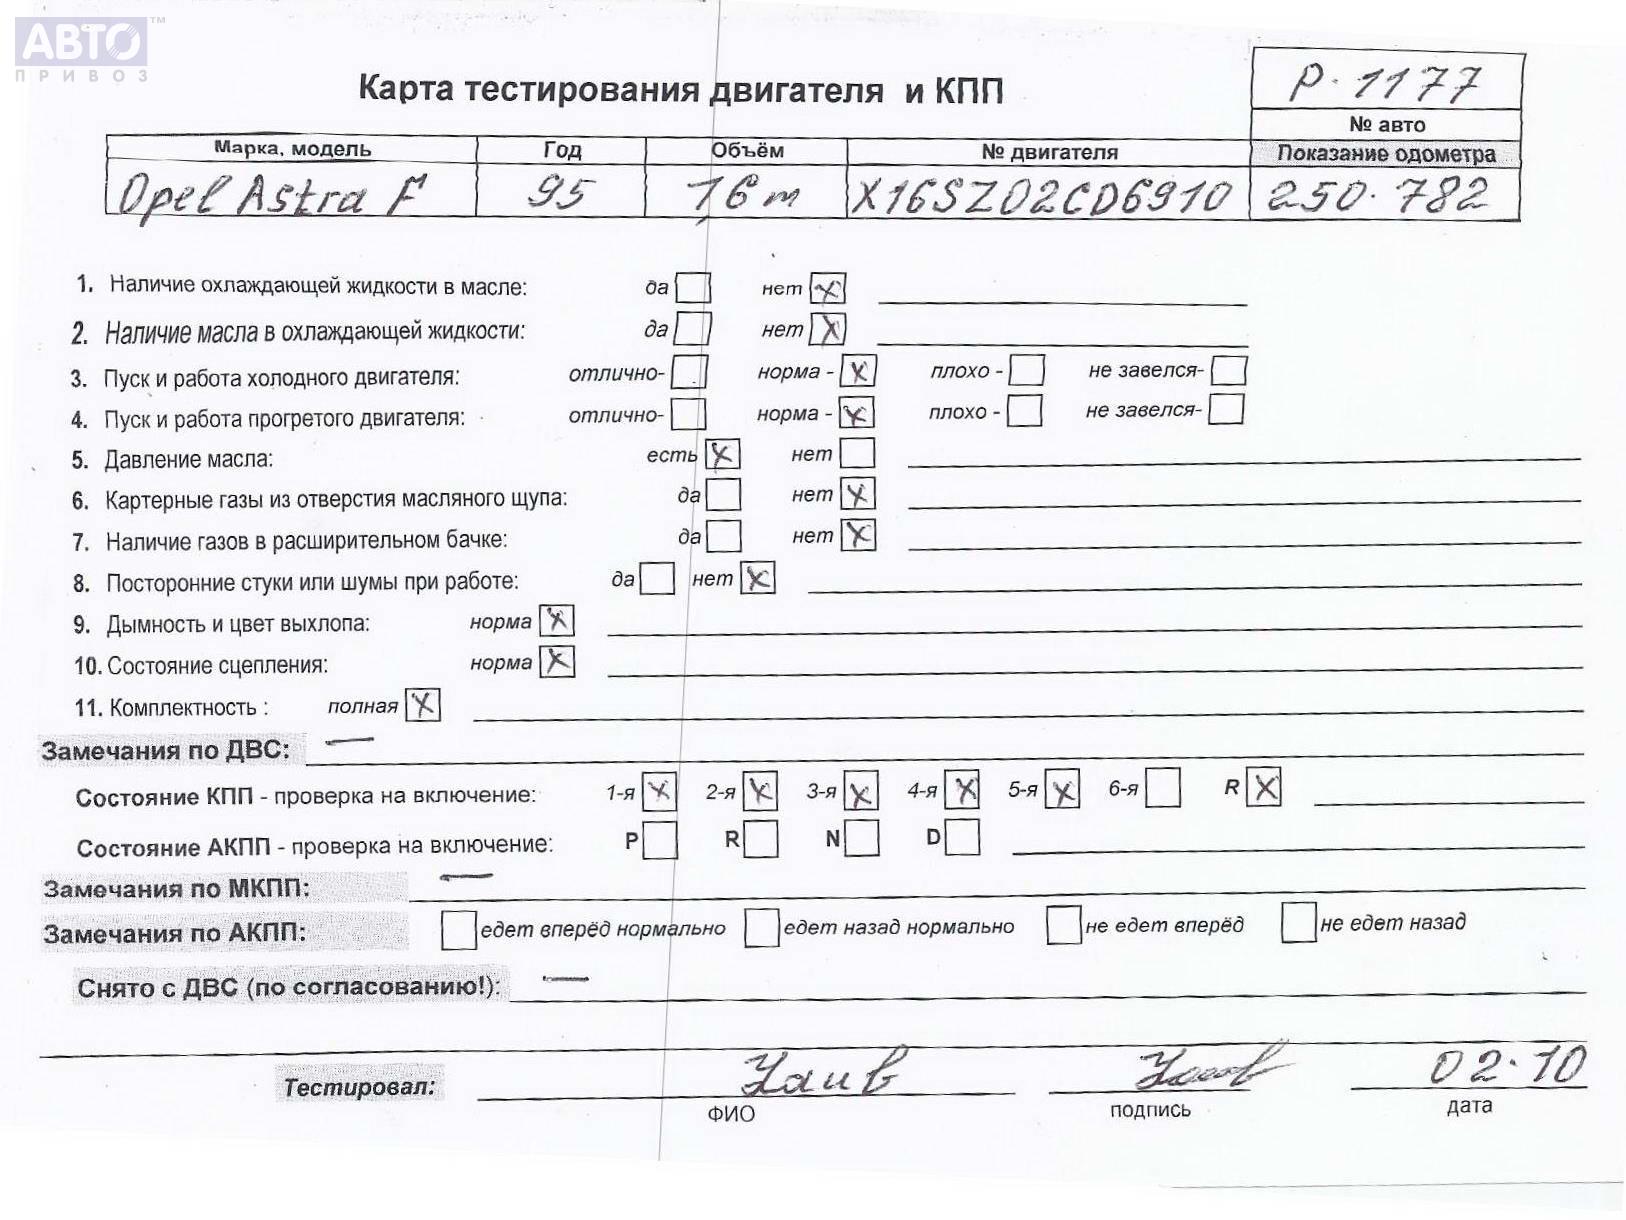 АВТО™
ПРИВОЗ
Карта тестирования двигателя и КПП
Р-1177
№ авто
Марка, модель Год Объём № двигателя Показание одометра
Opel Astra F 95 1,6 m X16SZ02CD6910 250.782
1. Наличие охлаждающей жидкости в масле: да нет X
2. Наличие масла в охлаждающей жидкости: да нет X
3. Пуск и работа холодного двигателя: отлично- норма - X плохо - не завелся-
4. Пуск и работа прогретого двигателя: отлично- норма - X плохо - не завелся-
5. Давление масла: есть X нет
6. Картерные газы из отверстия масляного щупа: да нет X
7. Наличие газов в расширительном бачке: да нет X
8. Посторонние стуки или шумы при работе: да нет X
9. Дымность и цвет выхлопа: норма X
10. Состояние сцепления: норма X
11. Комплектность : полная X
Замечания по ДВС: —
Состояние КПП - проверка на включение: 1-я X 2-я X 3-я X 4-я X 5-я X 6-я R X
Состояние АКПП - проверка на включение: P R N D
Замечания по МКПП: —
Замечания по АКПП: едет вперёд нормально едет назад нормально не едет вперёд не едет назад
Снято с ДВС (по согласованию!): —
Тестировал: 02.10
ФИО подпись дата